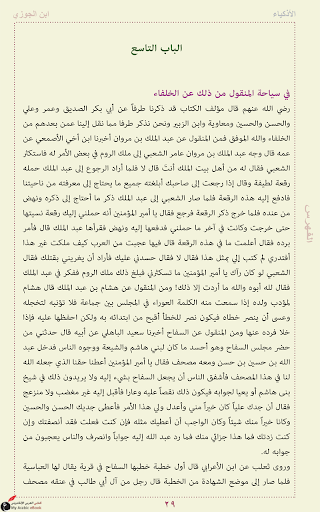 الأذكياء
ابن الجوزي
الباب التاسع
في سياحة المنقول من ذلك عن الخلفاء
رضي الله عنهم قال مؤلف الكتاب قد ذكرنا طرفاً عن أبي بكر الصديق وعمر وعلي
والحسن والحسين ومعاوية وابن الزبير ونحن نذكر طرفا مما نقل إلينا عمن بعدهم من
الخلفاء والله الموفق فمن المنقول عن عبد الملك بن مروان أخبرنا ابن أخي الأصمعي عن
عمه قال وجه عبد الملك بن مروان عامر الشعبي إلى ملك الروم في بعض الأمر له فاستكثر
الشعبي فقال له من أهل بيت الملك أنت قال لا فلما أراد الرجوع إلى عبد الملك حمله
رقعة لطيفة وقال إذا رجعت إلى صاحبك أبلغته جميع ما يحتاج إلى معرفته من ناحيتنا
فادفع إليه هذه الرقعة فلما صار الشعبي إلى عبد الملك ذكر ما أحتاج إلى ذكره ونهض
من عنده فلما خرج ذكر الرقعة فرجع فقال يا أمير المؤمنين أنه حملني إليك رقعة نسيتها
حتى خرجت وكانت في آخر ما حملني فدفعها إليه ونهض فقرأها عبد الملك قال فأمر
برده فقال أعلمت ما في هذه الرقعة قال فيها عجبت من العرب كيف ملكت غير هذا
أفتدري لم كتب إلي بمثل هذا فقال لا فقال حسدني عليك فأراد أن يغريني بقتلك فقال
الشعبي لو كان رآك يا أمير المؤمنين ما تسكثرني فبلغ ذلك ملك الروم ففكر في عبد الملك
فقال لله أبوه والله ما أردت إلا ذلك! ومن المنقول عن هشام بن عبد الملك قال هشام
لمؤدب ولده إذا سمعت منه الكلمة العوراء في المجلس بين جماعة فلا تؤنبه لتخجله
وعسى أن ينصر خطاه فيكون نصر للخطأ أقبح من ابتدائه به ولكن احفظها عليه فإذا
خلا فرده عنها ومن المنقول عن السفاح أخبرنا سعيد الباهلي عن أبيه قال حدثني من
حضر مجلس السفاح وهو أحسد ما كان لبني هاشم والشيعة ووجوه الناس فدخل عبد
الله بن حسين بن حسن ومعه مصحف فقال يا أمير المؤمنين أعطنا حقنا الذي جعله الله
لنا في هذا المصحف فأشفق الناس أن يجعل السفاح بشيء إليه ولا يريدون ذلك في شيخ
بنى هاشم أو يعيا لجوابه فيكون ذلك نقصاً عليه وعارا فأقبل إليه غير مغضب ولا منزعج
فقال أن جدك علياً كان خيراً مني وأعدل ولي هذا الأمر فأعطى جديك الحسن والحسين
وكانا خيراً منك شيئاً وكان الواجب أن أعطيك مثله فإن كنت فعلت فقد أنصفتك وإن
كنت زدتك فما هذا جزائي منك فما رد عبد الله إليه جواباً وانصرف والناس يعجبون من
جوابه له.
وروى ثعلب عن ابن الأعرابي قال أول خطبة خطبها السفاح في قرية يقال لها العباسية
فلما صار إلى موضع الشهادة من الخطبة قال رجل من آل أبي طالب في عنقه مصحف
الفهرس
٢٩
My Arabic eBook